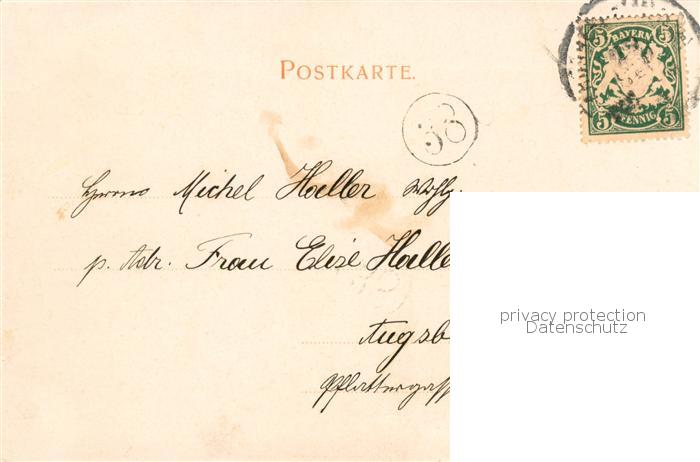 POSTKARTE.
5 BAYERN 5
5 PFENNIG 5
38
Herrn Michel Haller Wohlg.
p. Adr. Frau Elise Halle
Augsb
privacy protection
Datenschutz